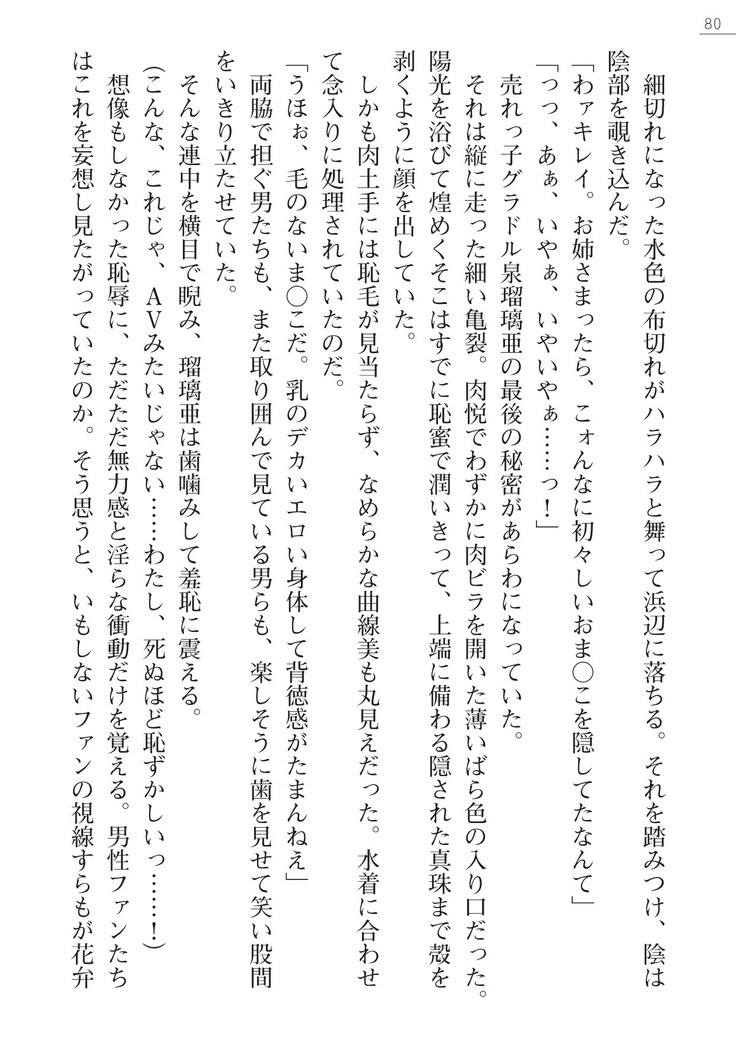 80
細切れになった水色の布切れがハラハラと舞って浜辺に落ちる。それを踏みつけ、陰は
陰部を覗き込んだ。
「わァキレイ。お姉さまったら、こォんなに初々しいおま〇こを隠してたなんて」
「っっ、あぁ、いやぁ、いやいやぁ……っ！」
売れっ子グラドル泉瑠璃亜の最後の秘密があらわになっていた。
それは縦に走った細い亀裂。肉悦でわずかに肉ビラを開いた薄いばら色の入り口だった。
陽光を浴びて煌めくそこはすでに恥蜜で潤いきって、上端に備わる隠された真珠まで殻を
剥くように顔を出していた。
しかも肉土手には恥毛が見当たらず、なめらかな曲線美も丸見えだった。水着に合わせ
て念入りに処理されていたのだ。
「うほぉ、毛のないま〇こだ。乳のデカいエロい身体して背徳感がたまんねえ」
両脇で担ぐ男たちも、また取り囲んで見ている男らも、楽しそうに歯を見せて笑い股間
をいきり立たせていた。
そんな連中を横目で睨み、瑠璃亜は歯噛みして羞恥に震える。
（こんな、これじゃ、ＡＶみたいじゃない……わたし、死ぬほど恥ずかしいっ……！）
想像もしなかった恥辱に、ただただ無力感と淫らな衝動だけを覚える。男性ファンたち
はこれを妄想し見たがっていたのか。そう思うと、いもしないファンの視線すらもが花弁